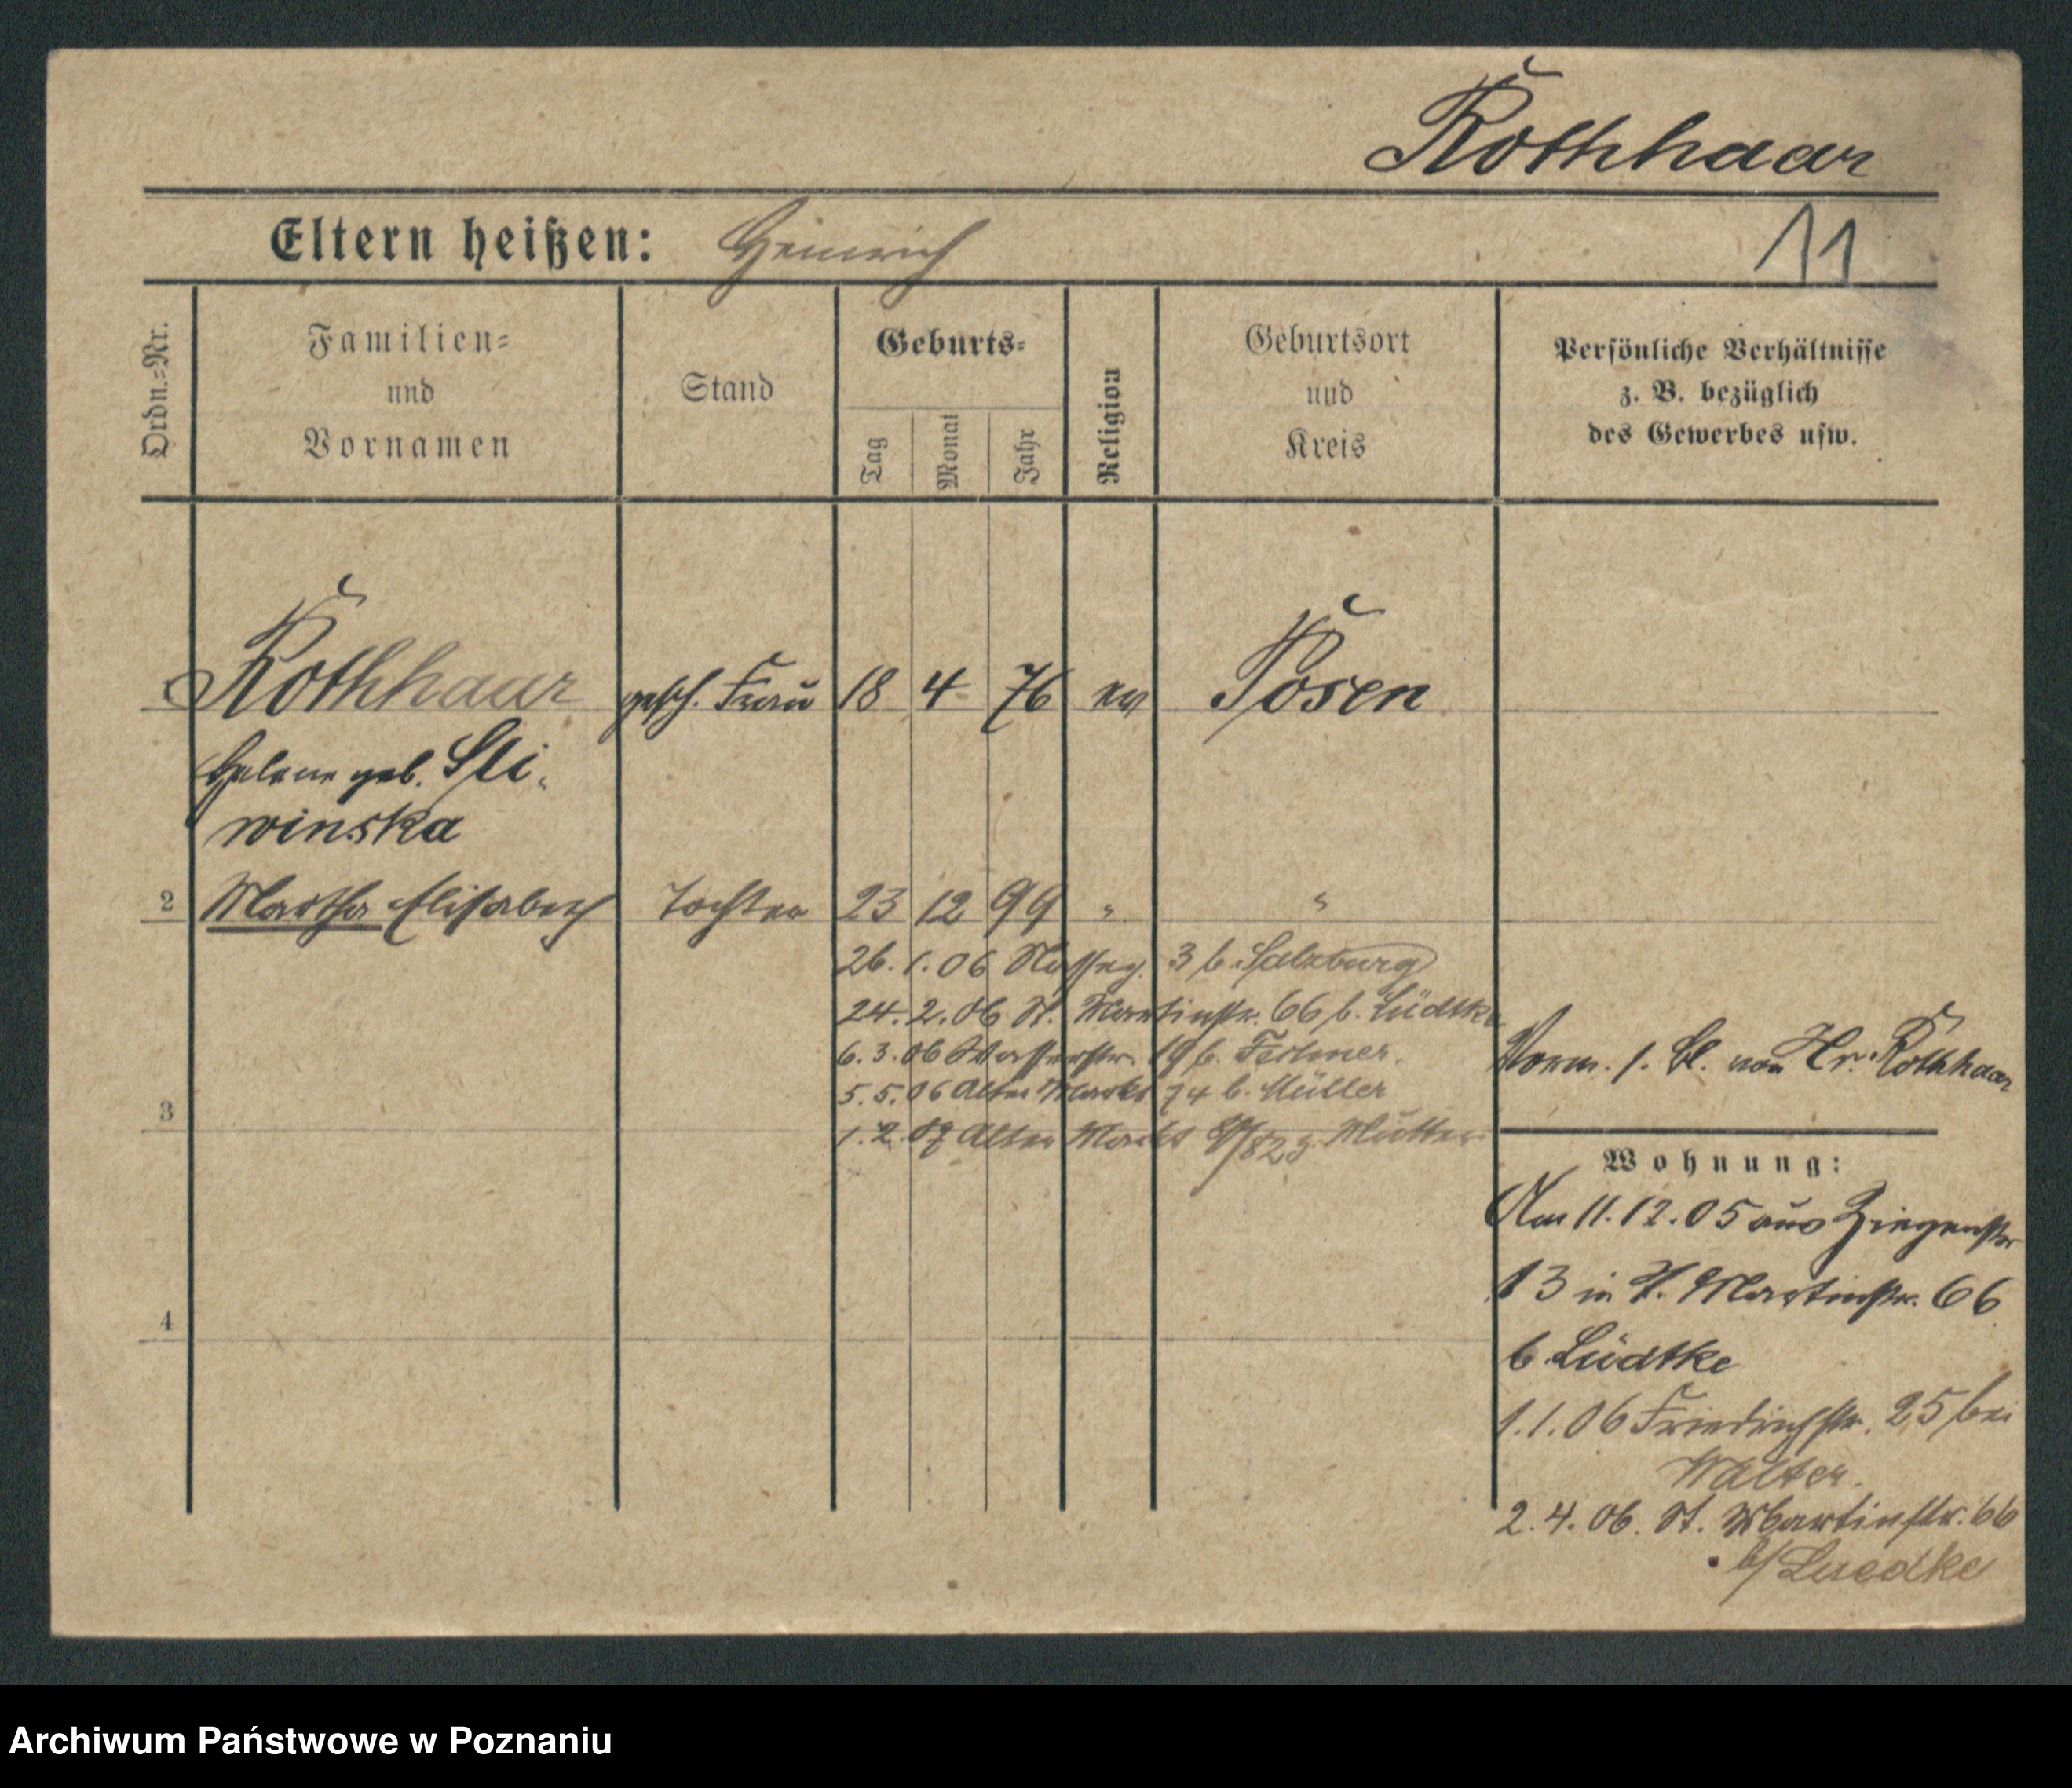 Rothhaar
Eltern heißen: Heinrich
11
Ordn.=Nr.
Familien=
und
Vornamen
Stand
Geburts=
Tag
Monat
Jahr
Religion
Geburtsort
und
Kreis
Persönliche Verhältnisse
z. B. bezüglich
des Gewerbes usw.
Rothhaar gesch. Frau 18 4 76 ev Posen
Helene geb. Sli-
winska
2 Martha Elisabeth Tochter 23 12 99 " "
26. 1. 06 3 b. Salzburg
24. 2. 06 St. Martinstr. 66 b. Lüdtke
6. 3. 06 Wasserstr. 19 b. Fechner.
5. 5. 06 Alter Markt 74 b. Müller
1. 2. 07 Alter Markt z. Mutter
Verm. 1. Bl. von Hr. Rothhaar
3
Wohnung:
Am 11. 12. 05 aus Ziegenstr
13 in St. Martinstr. 66
b. Lüdtke
4
1. 1. 06 Friedrichstr. 25 bei
Walter.
2. 4. 06. St. Martinstr. 66
b/ Luedke
Archiwum Państwowe w Poznaniu